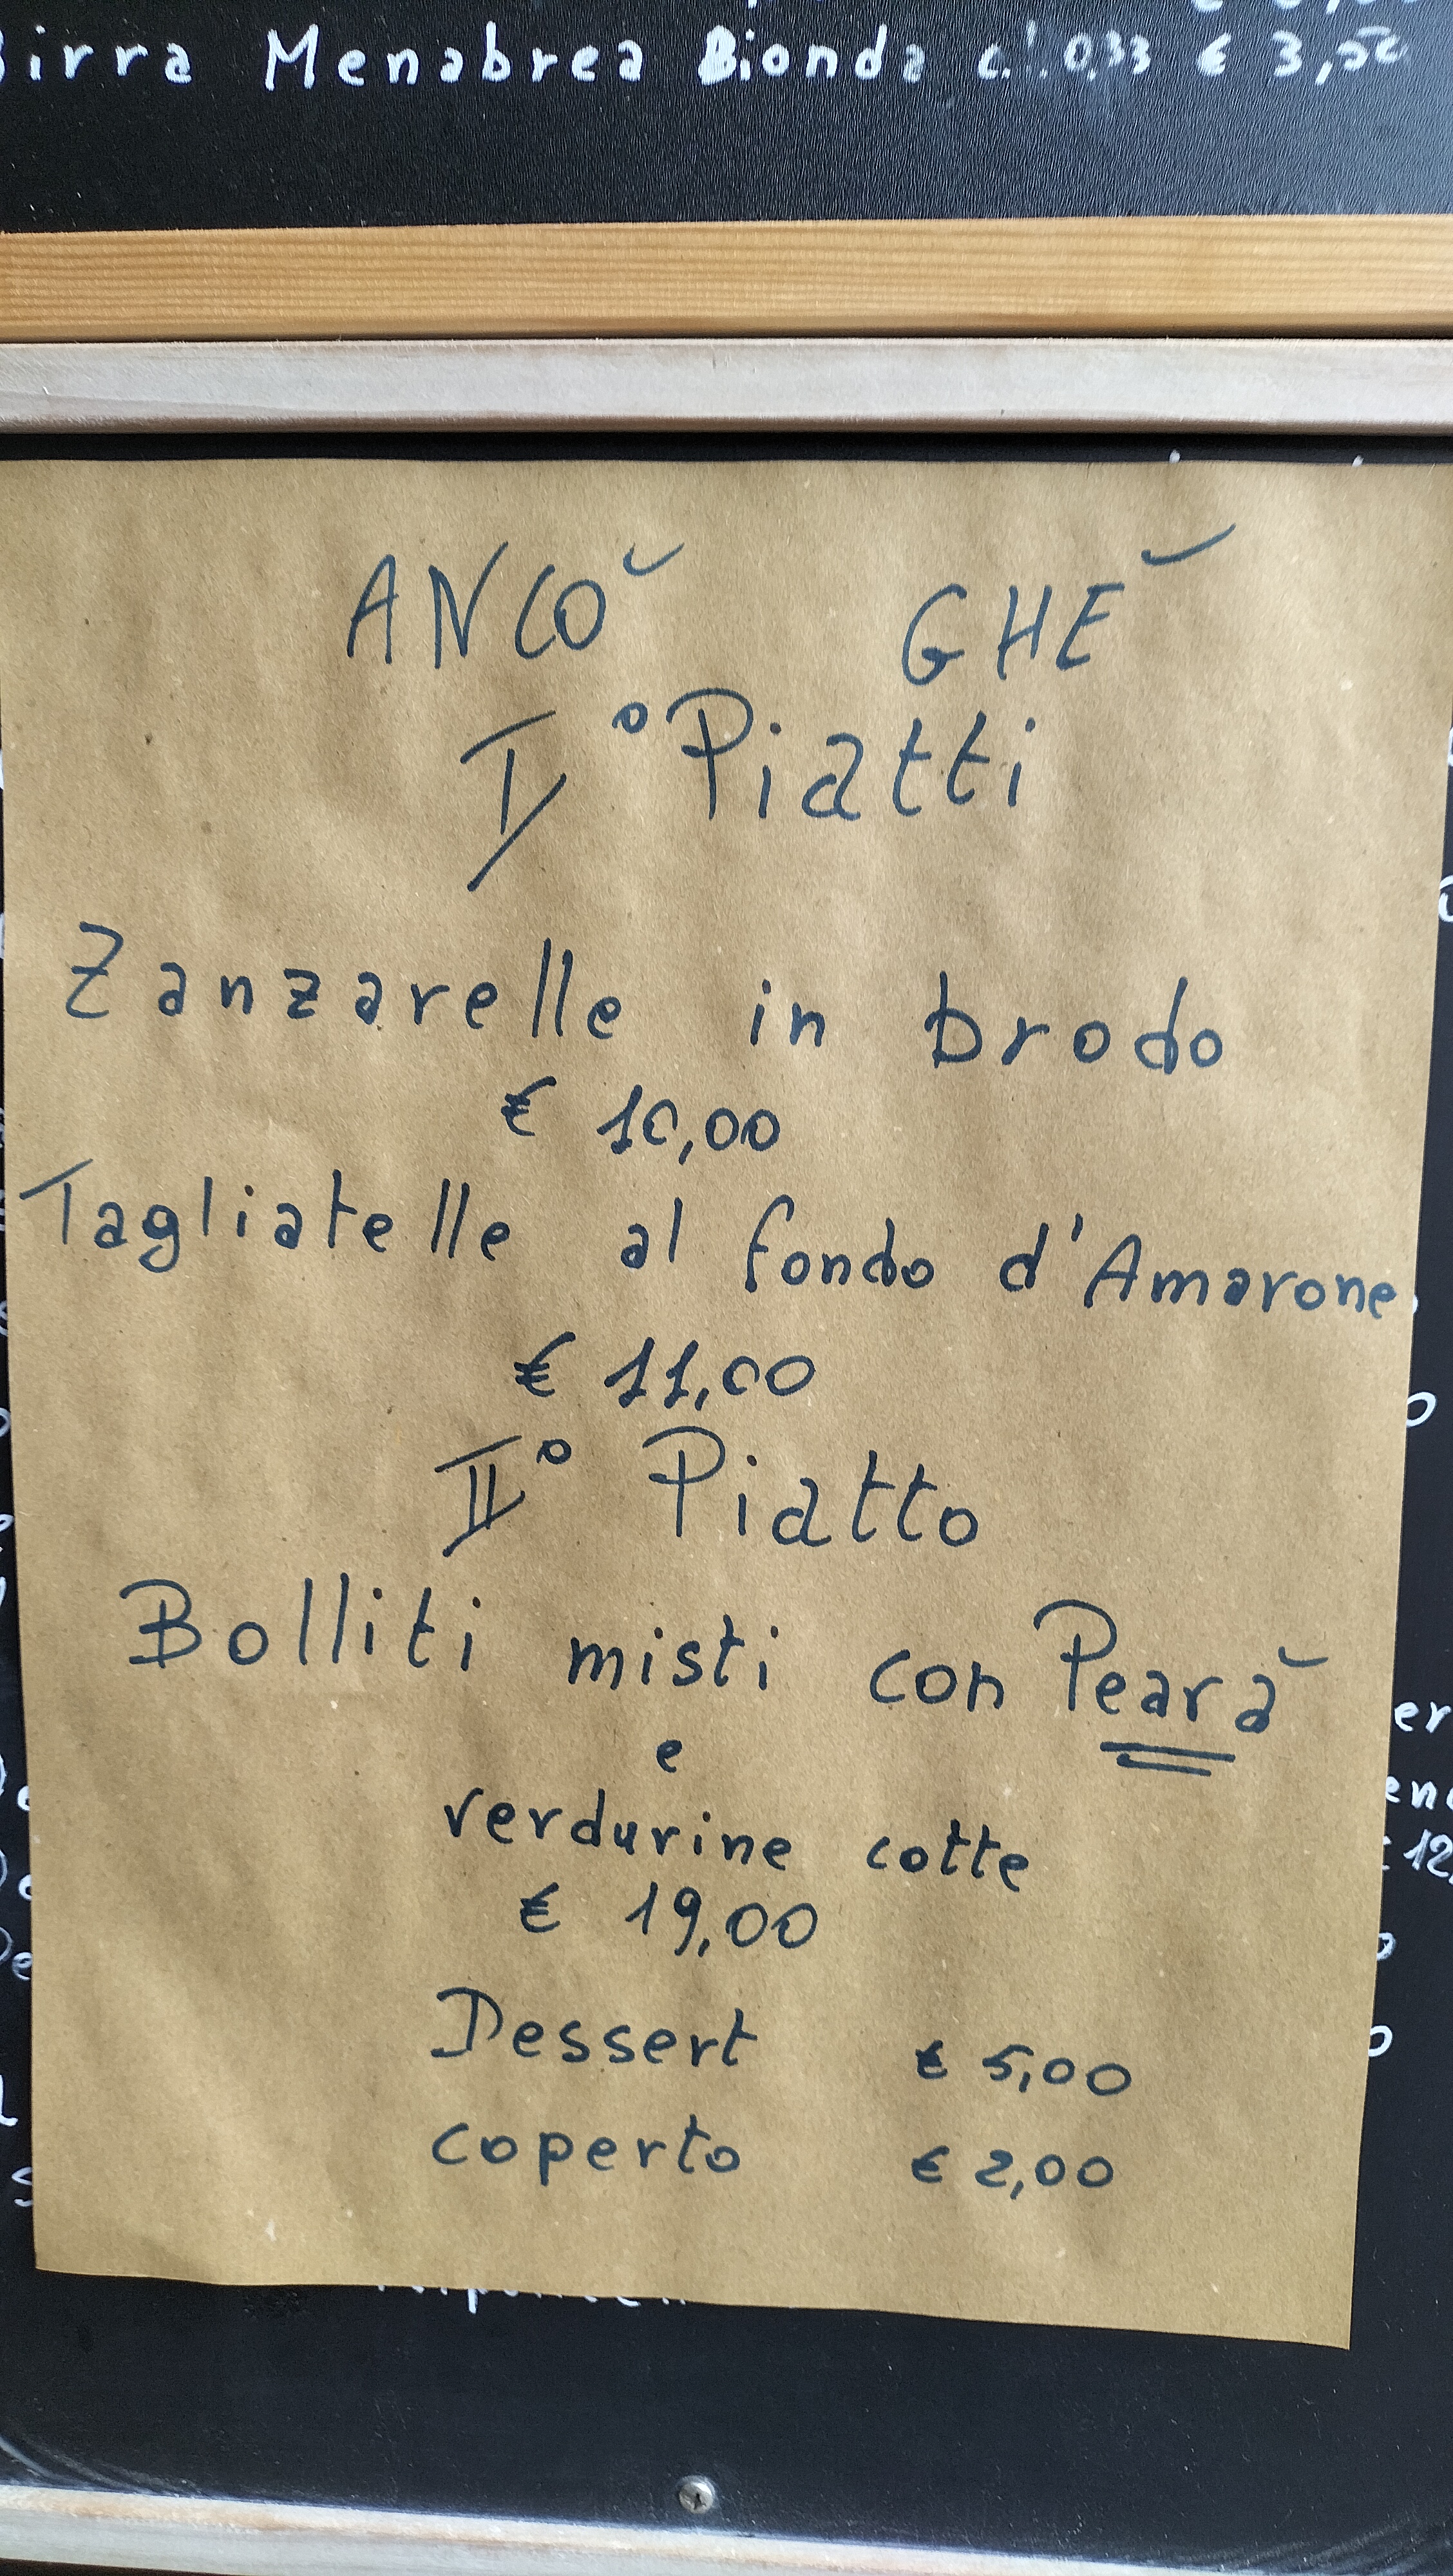 Birra Menabrea Bionda cl. 0,33 € 3,50
ANCÒ GHÈ
I° Piatti
Zanzarelle in brodo
€ 10,00
Tagliatelle al fondo d'Amarone
€ 11,00
II° Piatto
Bolliti misti con Pearà
e
verdurine cotte
€ 19,00
Dessert € 5,00
coperto € 2,00